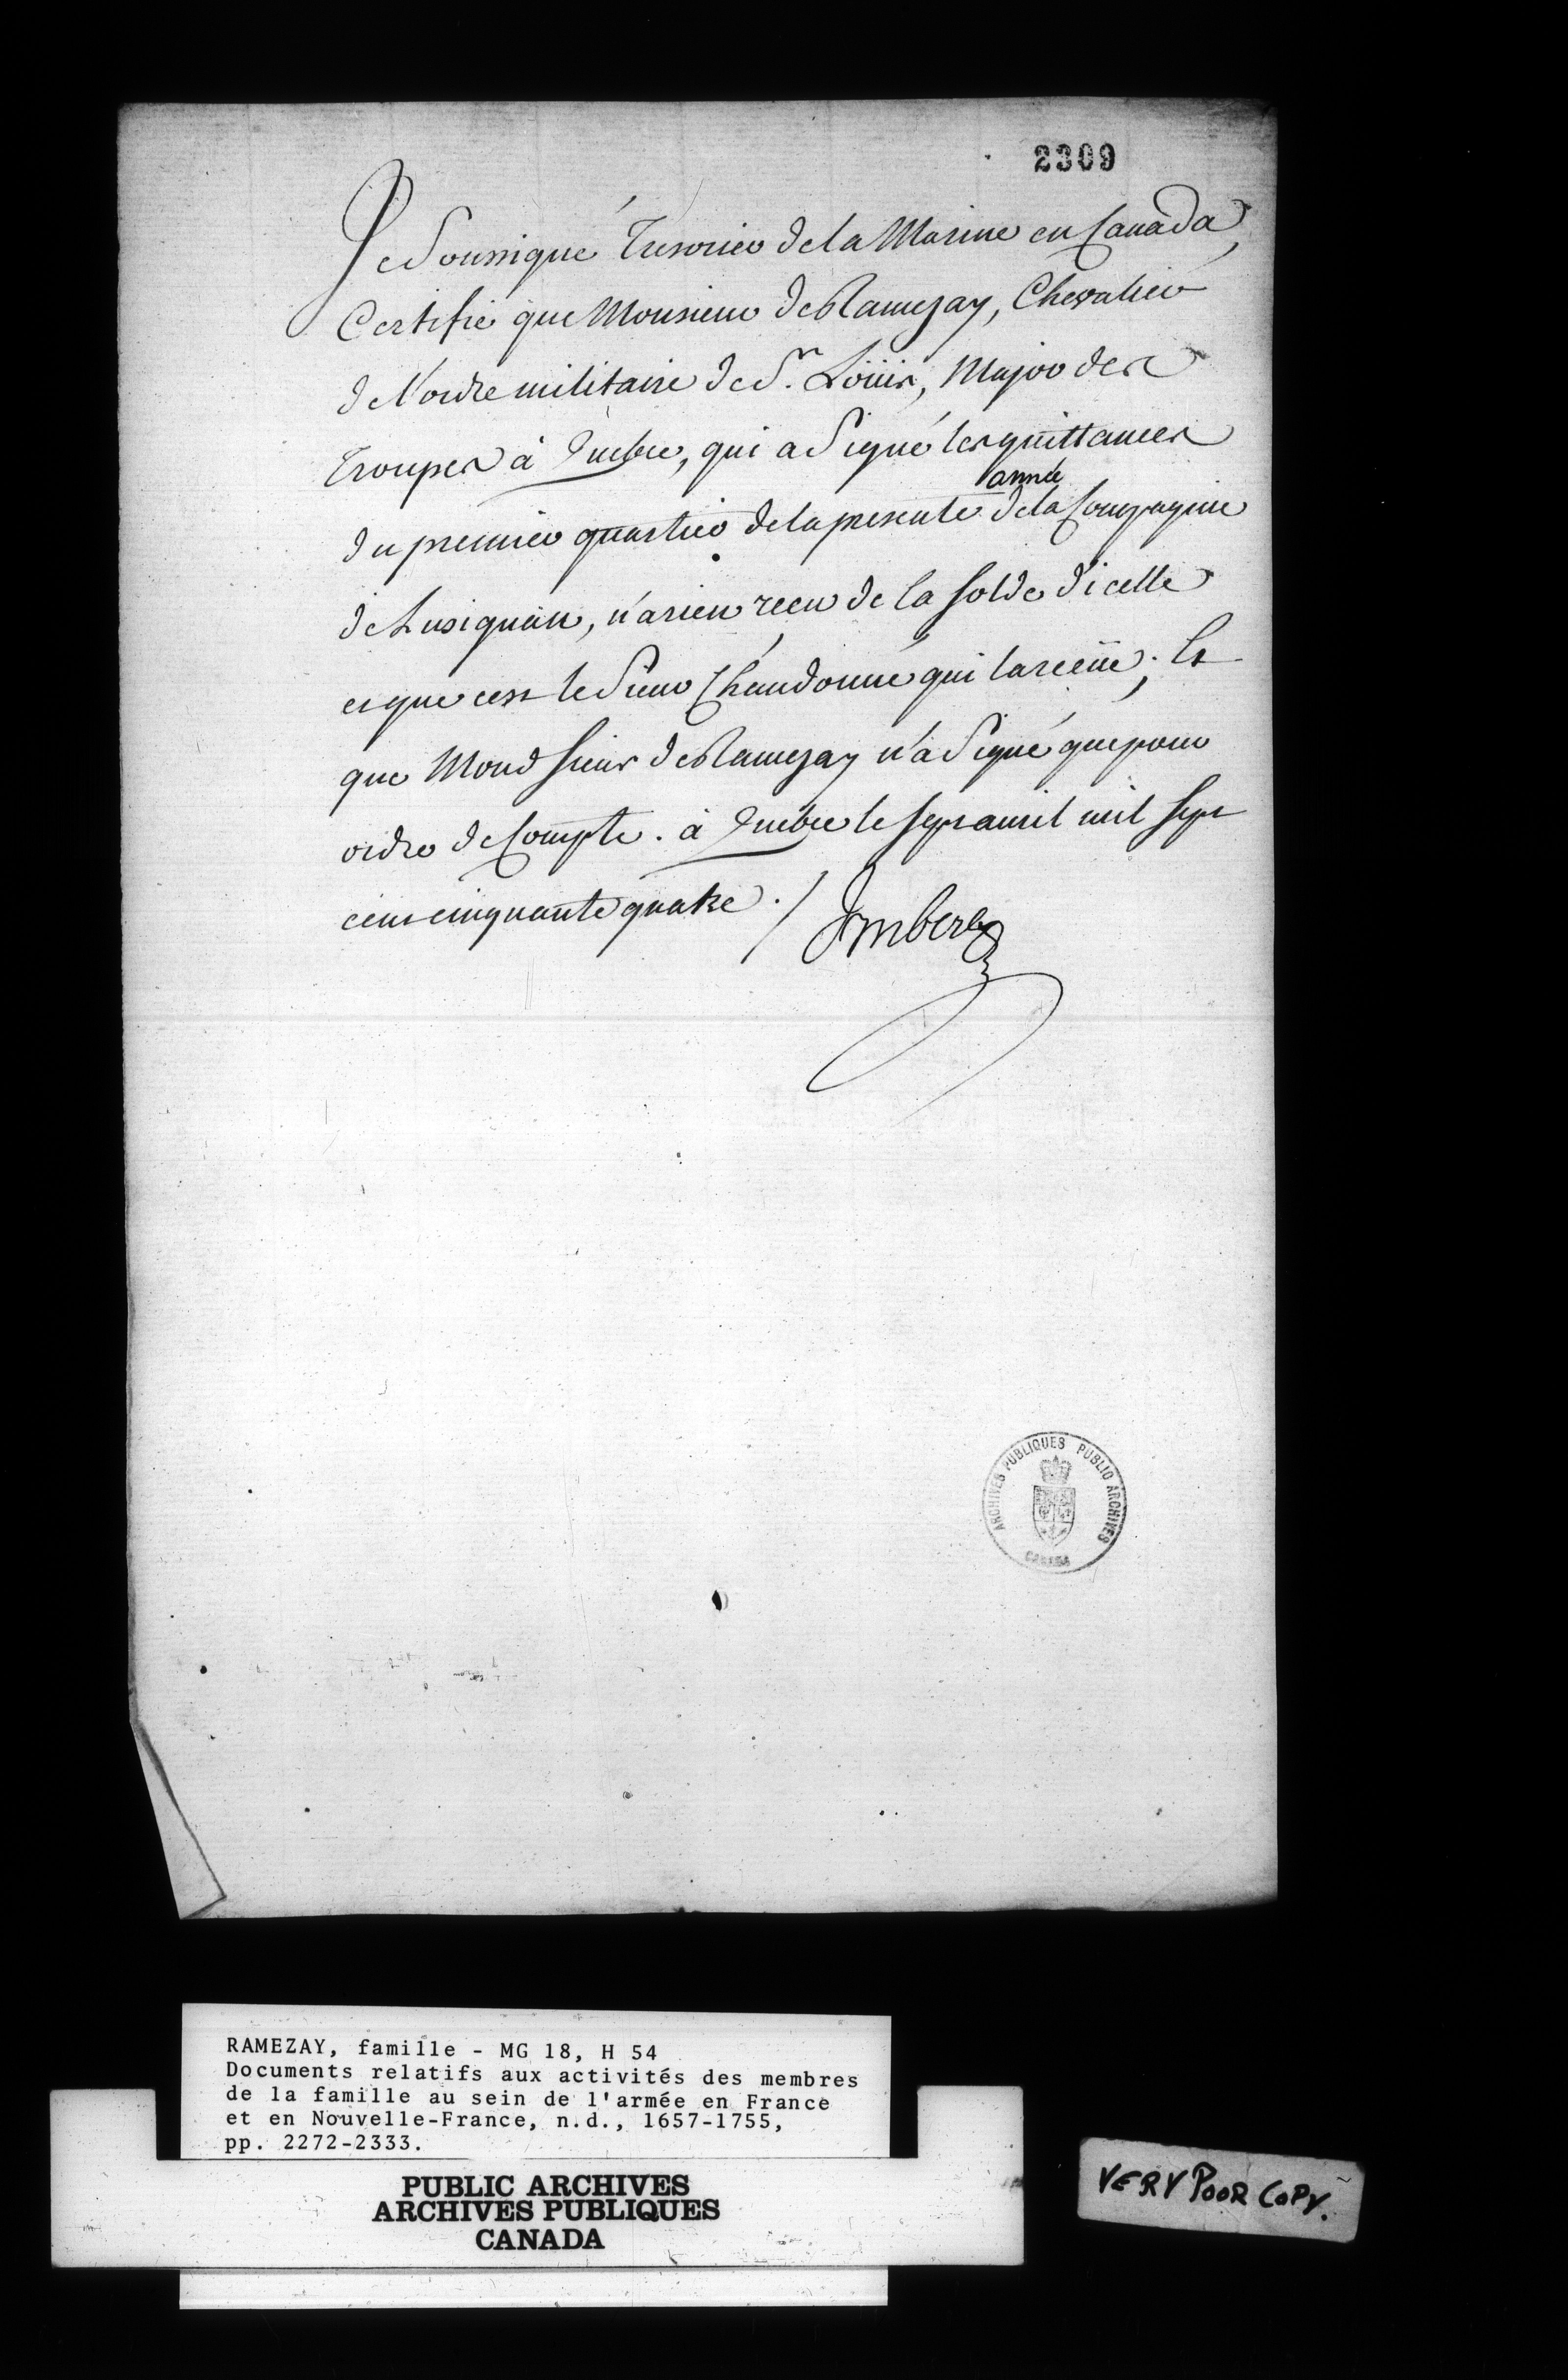 2309
Je Soussigné Trésorier de la Marine en Canada,
Certifie que Monsieur de Ramezay, Chevalier
de l'ordre militaire de St. Loüis, Major des
Troupes à Quebec, qui a Signé les quittances
année
du premier quartier de la presente de la Compagnie
de Lusignan, n'a rien receu de la solde d'icelle
et que c'est le Sieur Chandonné qui la receüe; Et
que Mond Sieur de Ramezay n'a Signé que pour
ordre de Compte. à Quebec le sept avril mil sept
cent cinquante quatre ./ Imbert
ARCHIVES PUBLIQUES PUBLIC ARCHIVES
CANADA
RAMEZAY, famille - MG 18, H 54
Documents relatifs aux activités des membres
de la famille au sein de l'armée en France
et en Nouvelle-France, n.d., 1657-1755,
pp. 2272-2333.
PUBLIC ARCHIVES
ARCHIVES PUBLIQUES
CANADA
VERY POOR COPY.